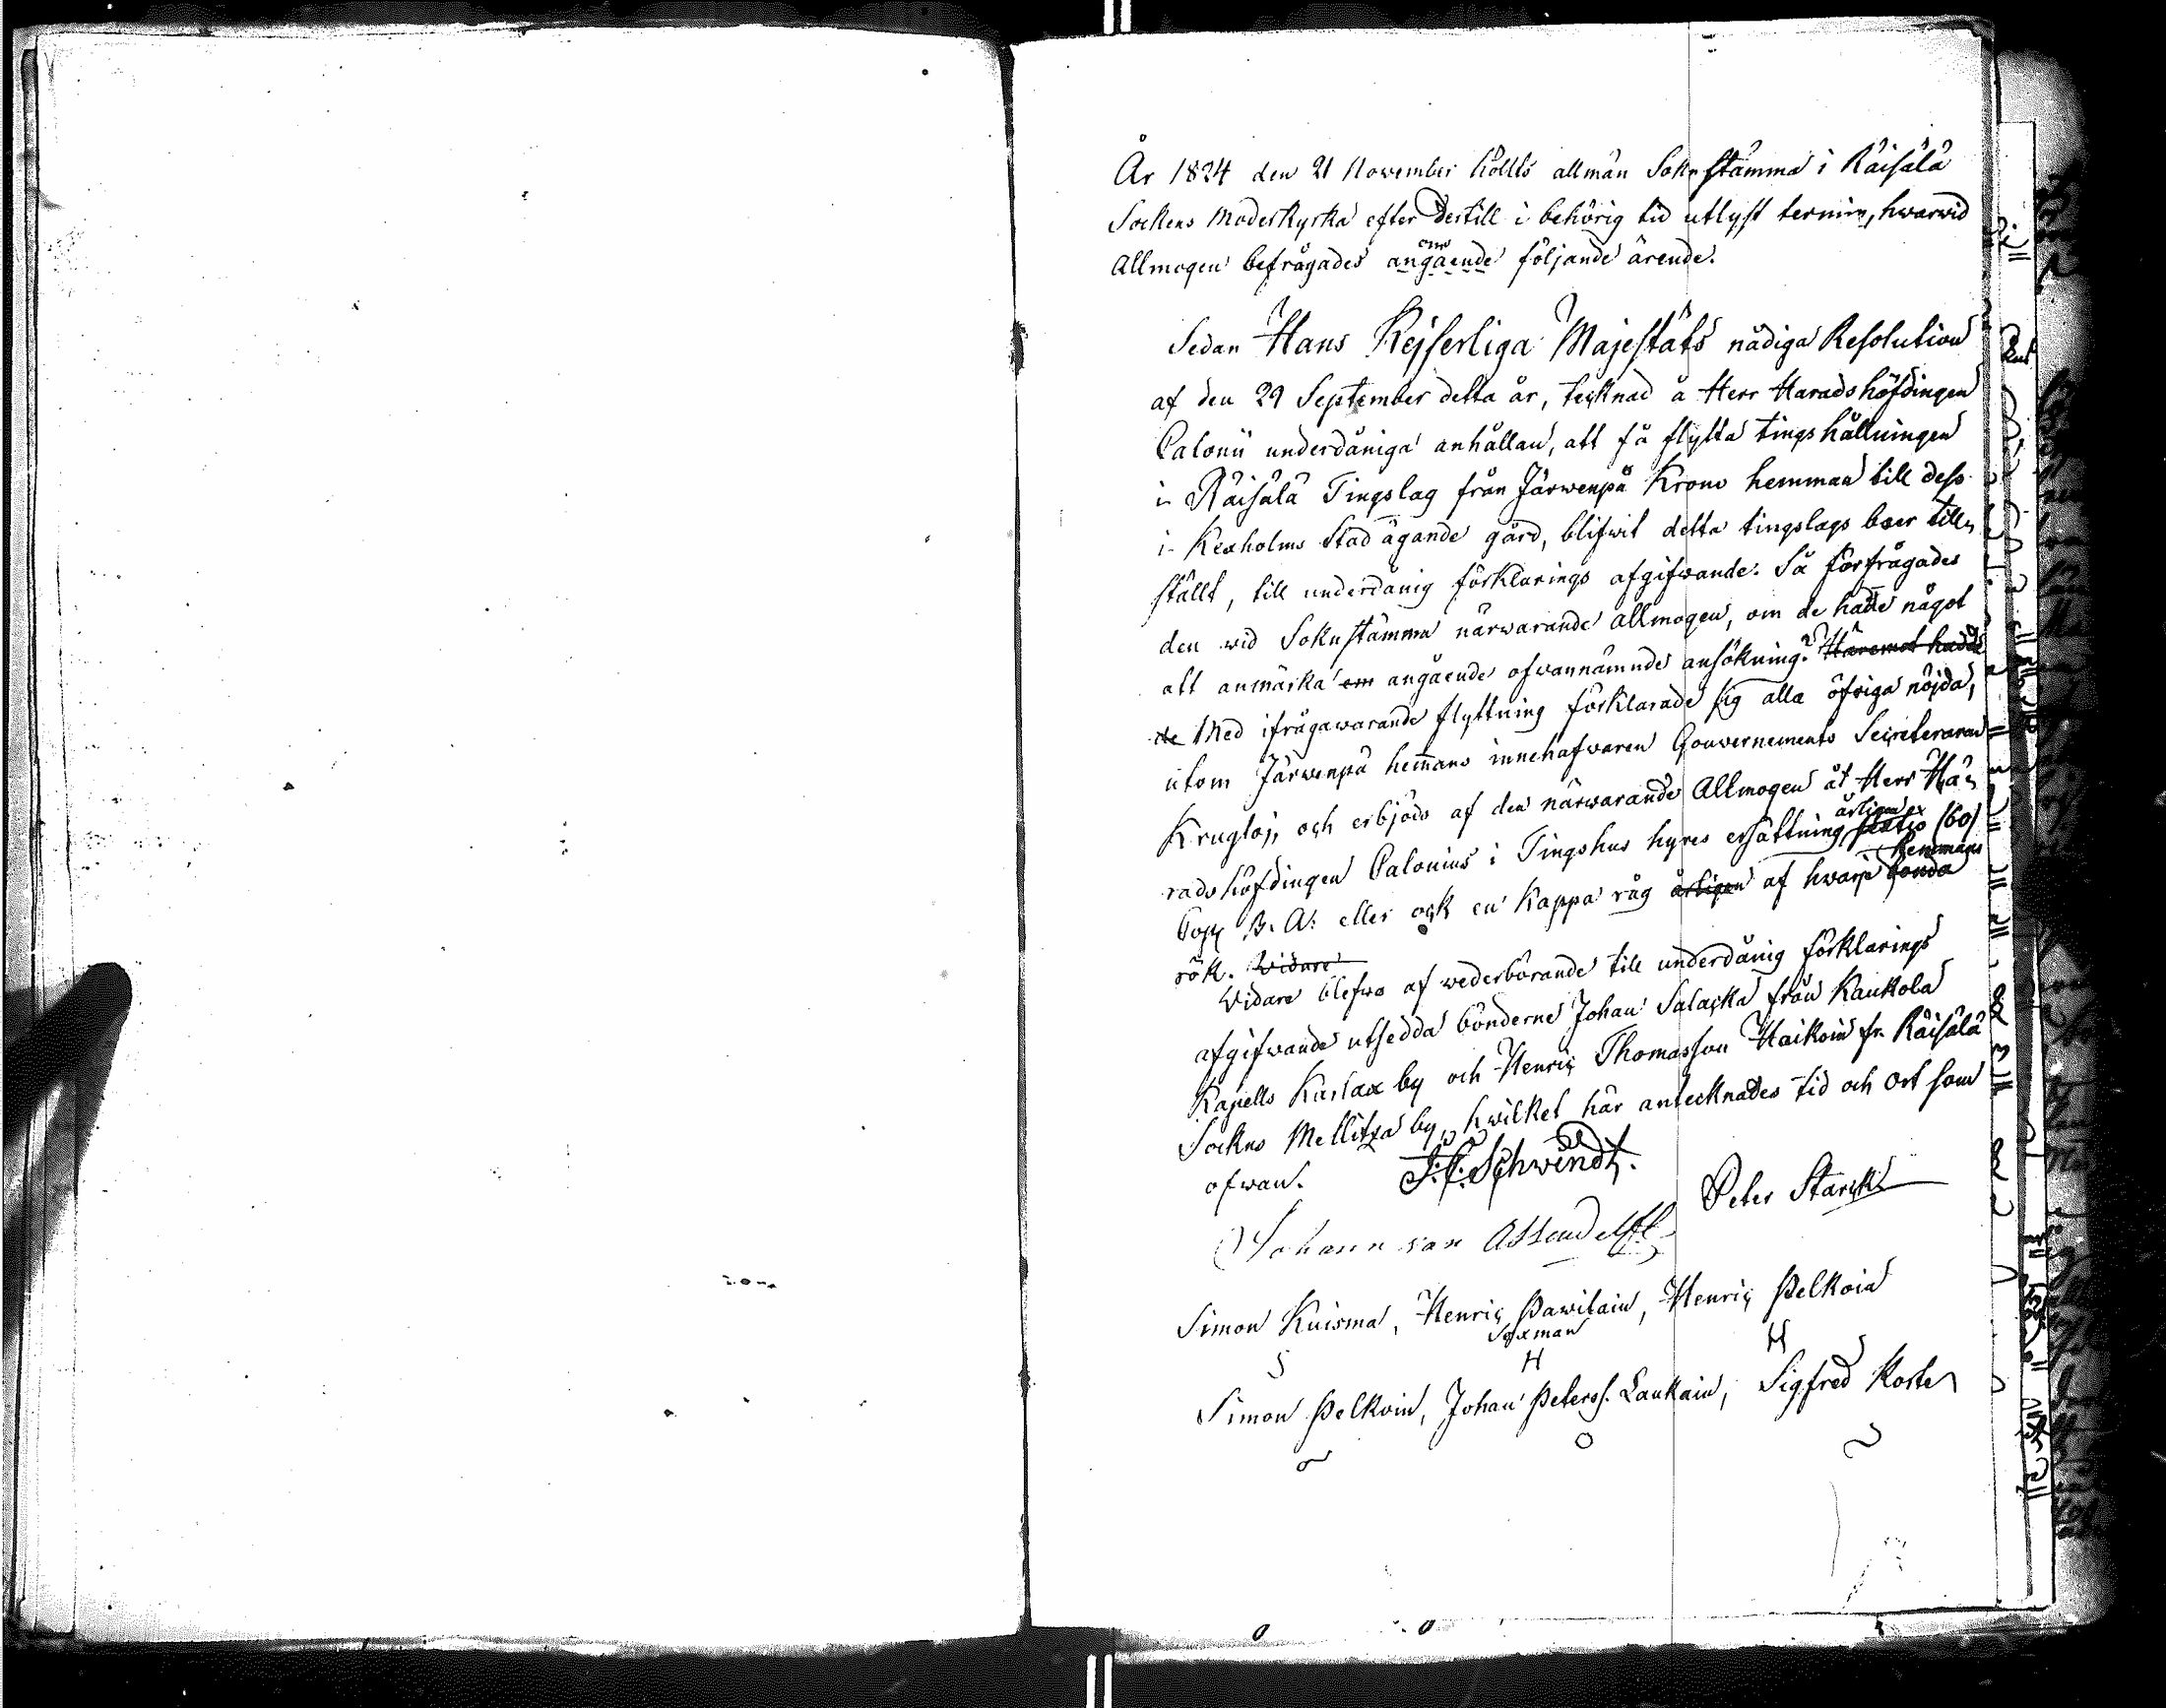 År 1824 den 21 November hölts allmän Soknstämma i Räisälä
Sockens Moderkyrka efter dertill i behörig tid utlyst termin, hwarwid
Allmogen befrågades angående om följande ärende.
Sedan Hans Kejserliga Majestäts nådiga Resolution
af den 29 September detta år, tecknad å Herr Haradshöfdingen
Calonii underdåniga anhållan, att få flytta tingshållningen
i Räisälä Tingslag från Järwenpä Krono hemman till dess
i Kexholms Stad ägande gård, blifwit detta tingslags boer till„
ställt, till underdånig förklarings afgifwande. Så förfrågades
den wid Soknstämma närwarande allmogen, om de hade något
att anmärka om angående ofwannämnde ansökning? Häremot hade
de Med ifrågawarande flyttning förklarade sig alla öfriga nöjda,
utom Järwenpä hemmans innehafwaren Gouvernements Secreteraren
Krugloj, och erbjöds af den närwarande Allmogen åt Herr Hä„
radshöfdingen Calonius i Tingshus hyres ersättning årligen sextio (60)
Cop. B. A: eller ock en Kappa råg årligen af hwarje bonda hemmans
rök. Widare
Widare blefwo af wederbörande till underdånig förklarings
afgifwande utsedda bönderne Johan Salacka från Kaukola
Kapells Karlax by och Henric Thomasson Haikoin fr. Räisälä
Sockns Mellitza by, hwilket här antecknades tid och ort som
ofwan. J. F. Schwindt.
Peter Starck
Johann van Assendelfft
Simon Kuisma, Henric Pawilain, Henric Pelkoin
Sexman
S H H
Simon Pelkoin, Johan Peterss. Laukain, Sigfred Koste